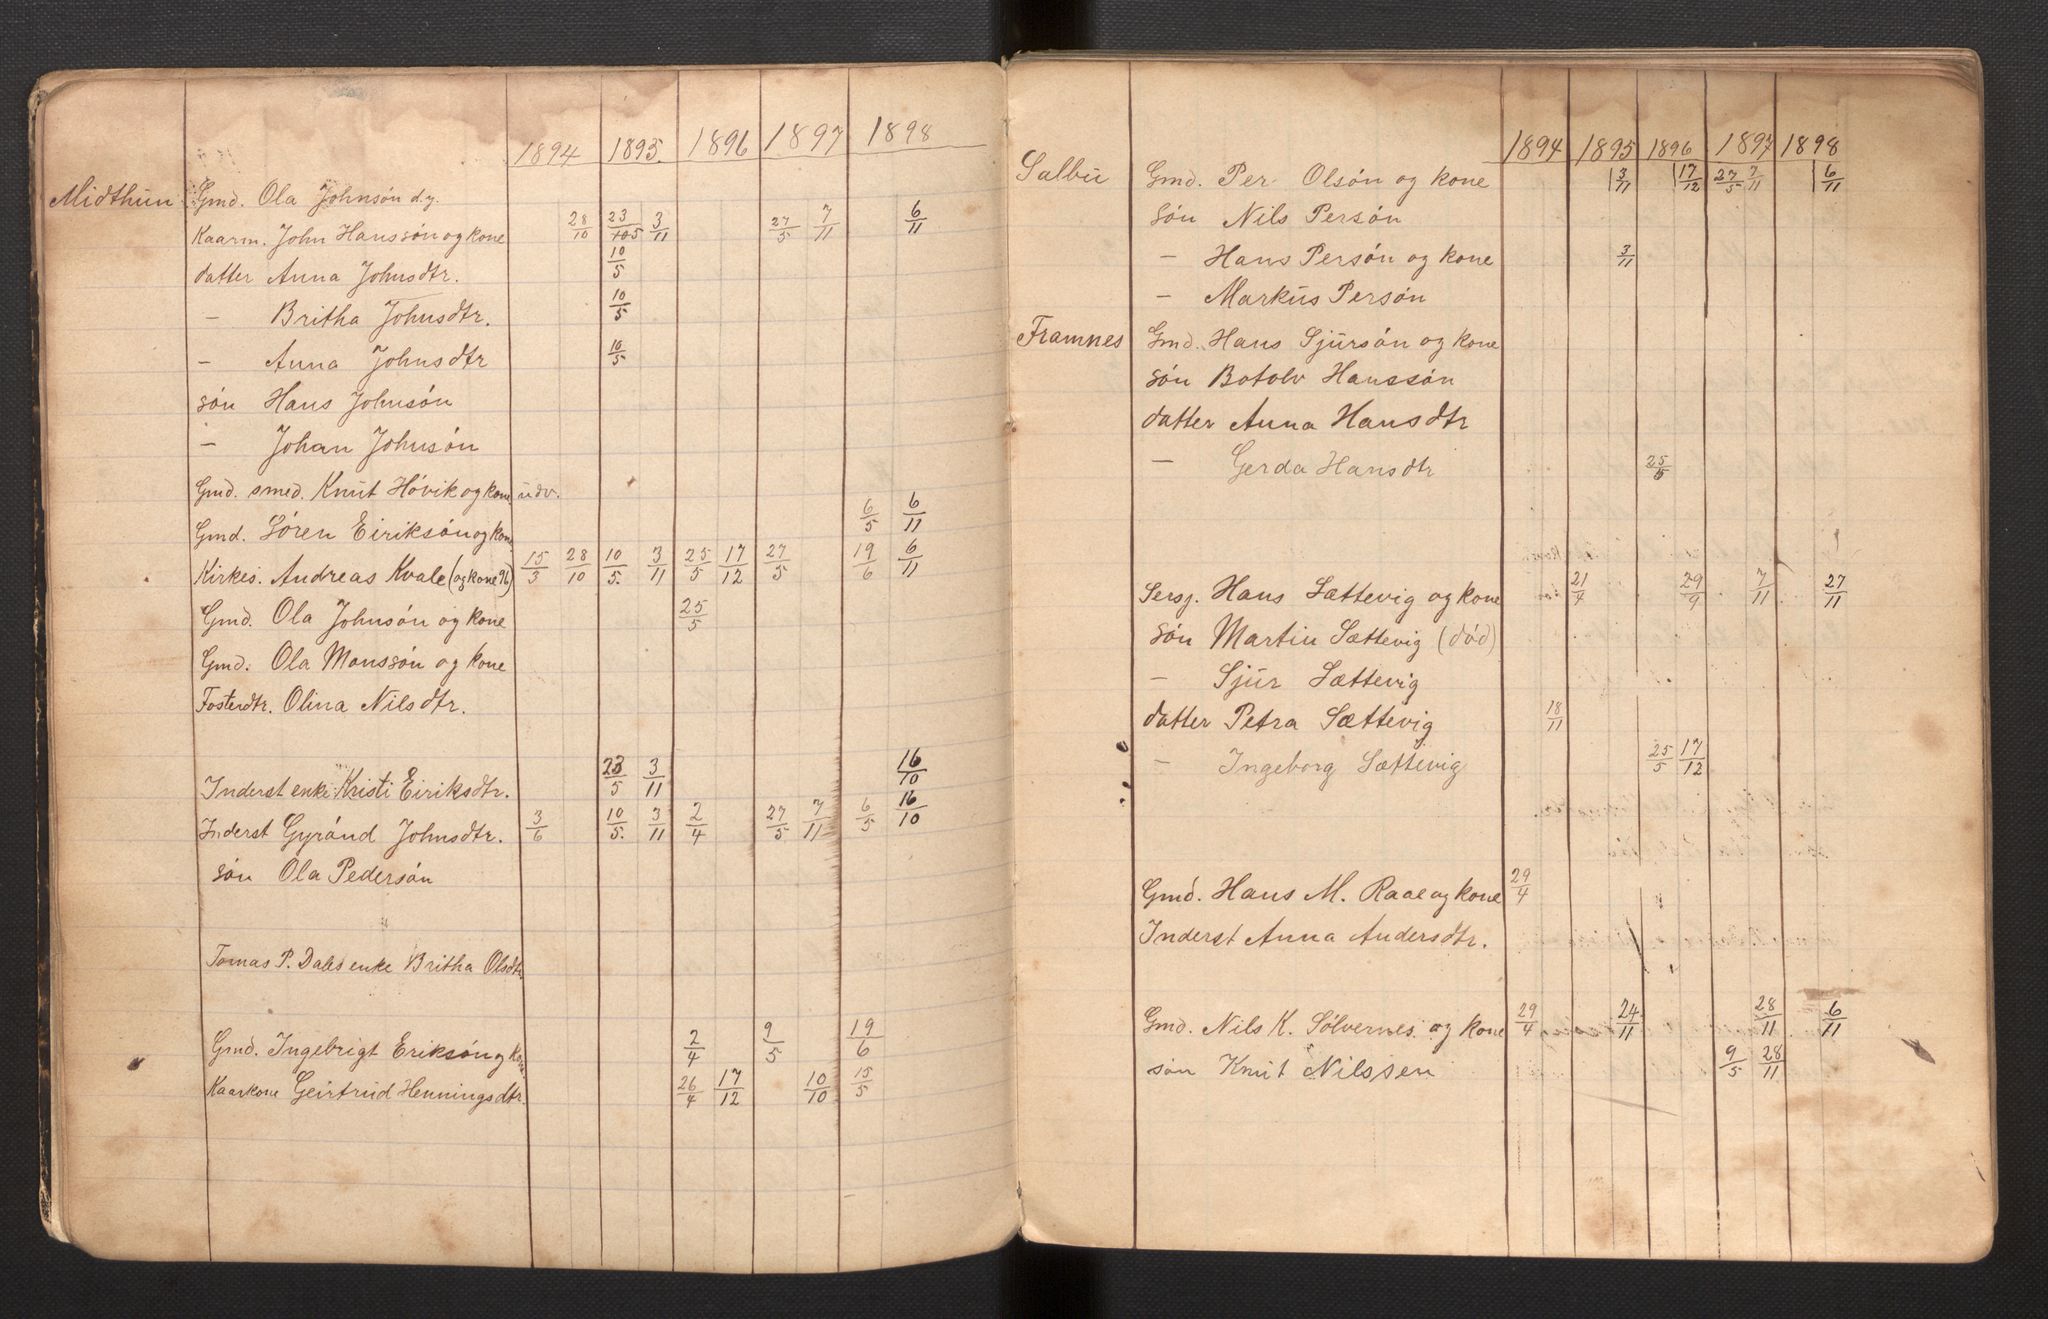 1894 1895. 1896 1897 1898
Midthun Gmd. Ola Johnsón d.y.
Kaarm. John Hanssón og kone 28/10 23/105 3/11 27/5 7/11 6/11
datter Anna Johnsdtr. 10/5
- Britha Johnsdtr. 10/5
- Anna Johnsdtr 10/5
són Hans Johnsón
- Johan Johnsón
Gmd. smed. Knut Hóvik og kone udv.
Gmd. Sóren Eiriksón og kone 6/5 6/11
Kirkes. Andreas Kvale (og kone 96) 15/3 28/10 10/5. 3/11 25/5 17/12 27/5 19/6 6/11
Gmd. Ola Johnsón og kone 25/5
Gmd. Ola Monssón og kone
Fosterdtr. Olina Nilsdtr.
Inderst enke Kristi Eiriksdtr. 23/5 3/11 16/10
Inderst Gyránd Johnsdtr. 3/6 10/5. 3/11 2/4 27/5 7/11 6/5 16/10
són Ola Pedersón
Tomas P. Dales enke Britha Olsdtr.
Gmd. Ingebrigt Eriksón og kone 2/4 9/5 19/6
Kaarkone Geirtrud Henningsdtr. 26/4 17/12 10/10 15/5
1894 1895 1896 1897 1898
Salbu Gmd. Per Olsón og kone 3/11 17/12 27/5 7/11 6/11
són Nils Persón
- Hans Persón og kone 3/11
- Markus Persón
Framnes Gmd. Hans Sjursón og kone
són Botolv Hanssón
datter Anna Hansdtr
- Gerda Hansdtr 25/5
Sersj. Hans Sættevig og kone 21/4 29/9 7/11 27/11
són Martin Sættevig (dód)
- Sjur Sættevig
datter Petra Sættevig 18/11
- Ingeborg Sættevig 25/5 17/12
Gmd. Hans M. Raae og kone 29/4
Inderst Anna Andersdtr.
Gmd. Nils K. Sólvernes og kone 29/4 24/11 28/11 6/11
són Knut Nilssen 9/5 28/11